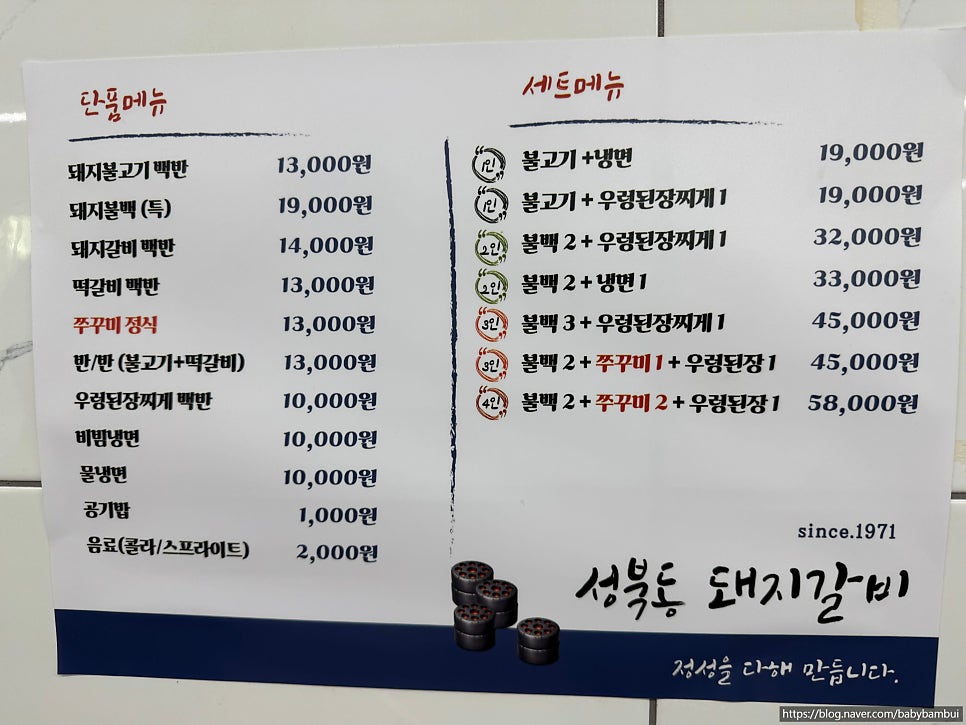 단품메뉴
돼지불고기 백반 13,000원
돼지불백 (특) 19,000원
돼지갈비 백반 14,000원
떡갈비 백반 13,000원
쭈꾸미 정식 13,000원
반/반 (불고기+떡갈비) 13,000원
우렁된장찌게 백반 10,000원
비빔냉면 10,000원
물냉면 10,000원
공기밥 1,000원
음료(콜라/스프라이트) 2,000원
세트메뉴
1인 불고기 +냉면 19,000원
1인 불고기 + 우렁된장찌게 1 19,000원
2인 불백 2 + 우렁된장찌게 1 32,000원
2인 불백 2 + 냉면 1 33,000원
3인 불백 3 + 우렁된장찌게 1 45,000원
3인 불백 2 + 쭈꾸미 1 + 우렁된장 1 45,000원
4인 불백 2 + 쭈꾸미 2 + 우렁된장 1 58,000원
since.1971
성북동 돼지갈비
정성을 다해 만듭니다.
https://blog.naver.com/babybambui